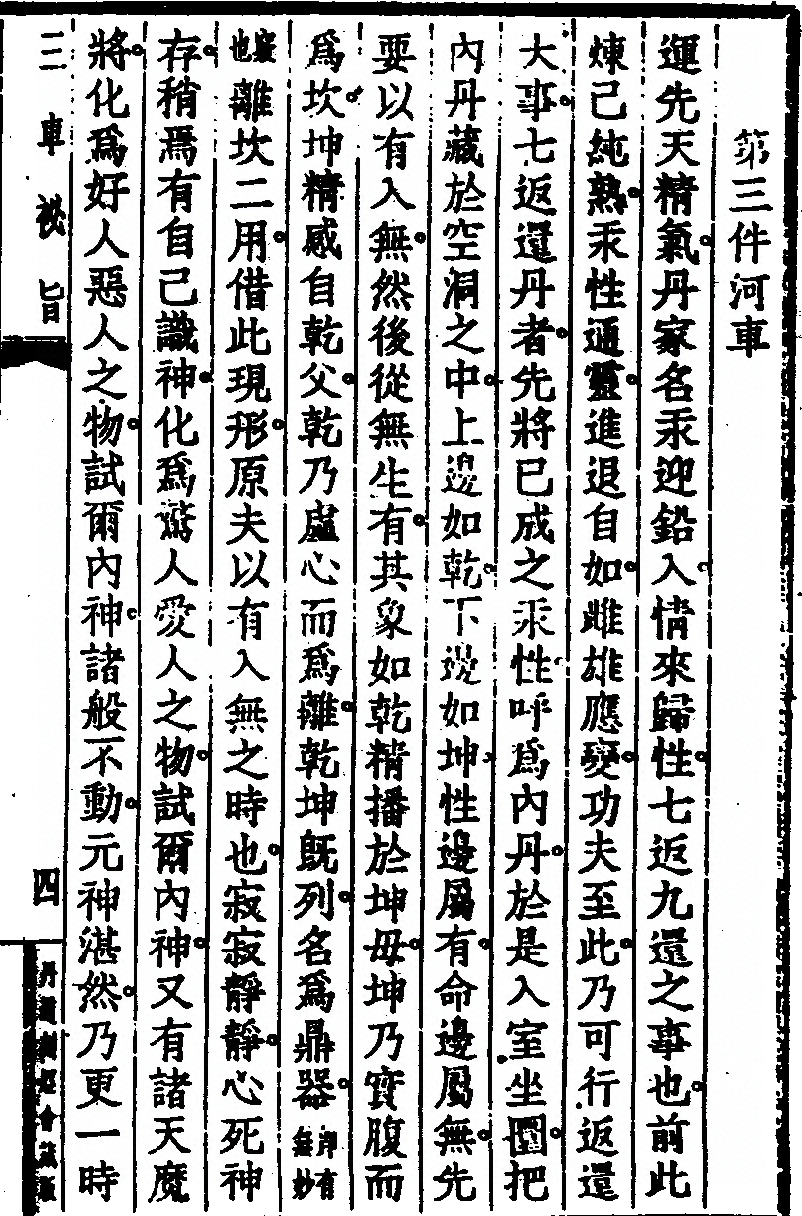 第三件河車
運先天精氣。丹家名汞迎鉛入。情來歸性。七返九還之事也。前此
煉己純熟。汞性通靈。進退自如。雌雄應變。功夫至此。乃可行返還
大事。七返還丹者。先將已成之汞性。呼爲內丹。於是入室坐圜。把
內丹藏於空洞之中。上邊如乾。下邊如坤。性邊屬有。命邊屬無。先
要以有入無。然後從無生有。其象如乾精播於坤母。坤乃實腹而
爲坎。坤精感自乾父。乾乃虛心而爲離。乾坤既列。名爲鼎器。卽有無妙
竅也離坎二用。借此現形。原夫以有入無之時也。寂寂靜靜。心死神
存。稍焉有自己識神。化爲驚人愛人之物。試爾內神。又有諸天魔
將。化爲好人惡人之物。試爾內神。諸般不動。元神湛然。乃更一時
三車祕旨
四
丹道刻經會藏版